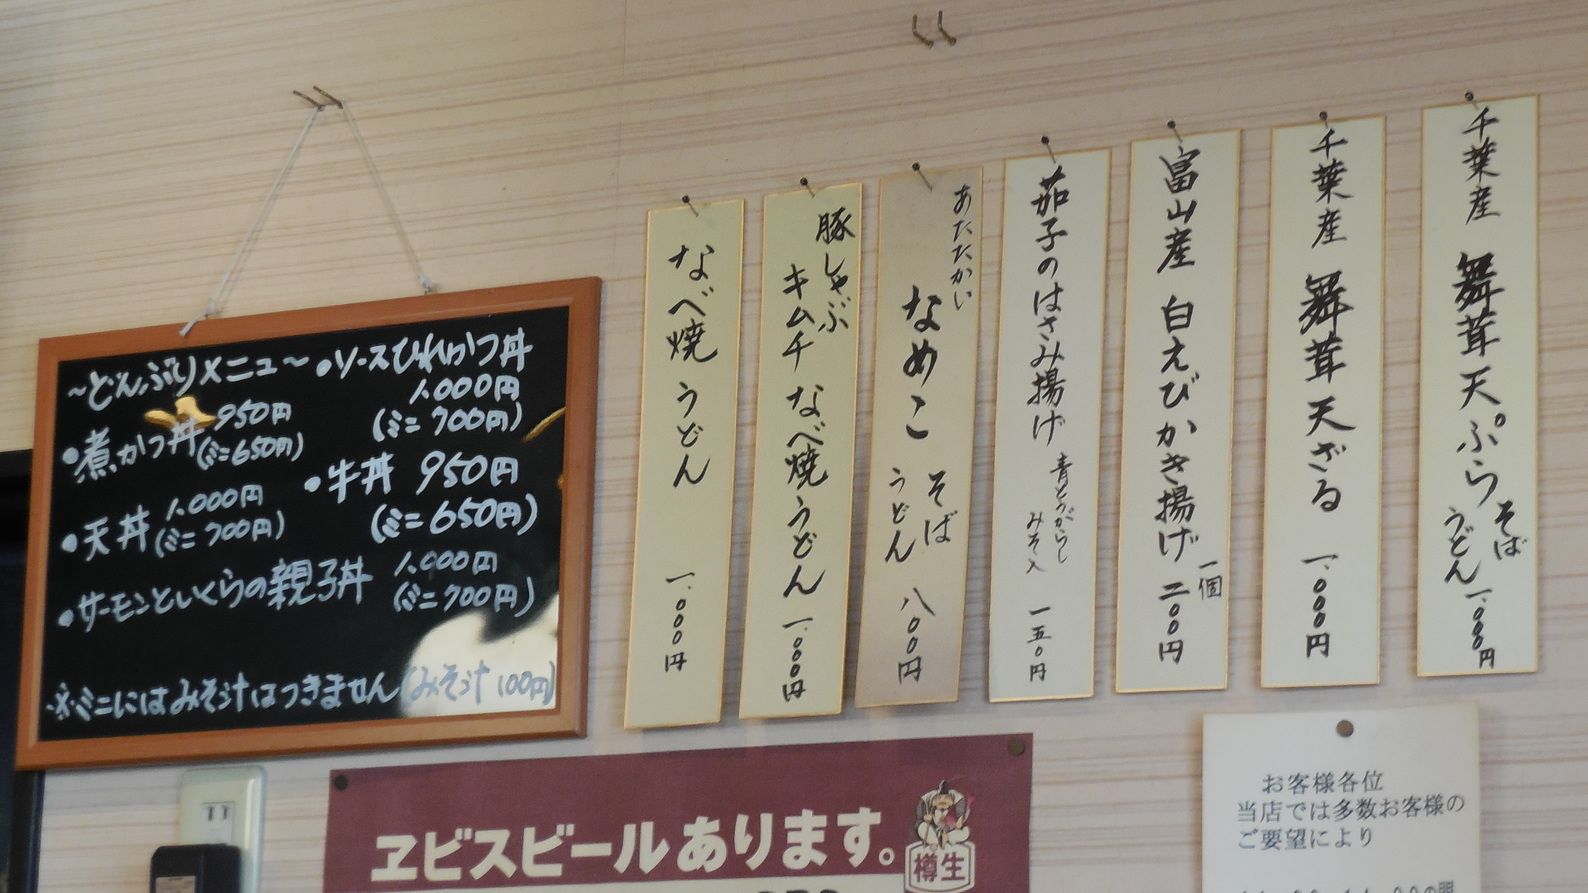 ～どんぶりメニュー～
●煮かつ丼 950円
(ミニ650円)
●天丼 1,000円
(ミニ700円)
●サーモンといくらの親子丼 1,000円
(ミニ700円)
●ソースひれかつ丼
1,000円
(ミニ700円)
●牛丼 950円
(ミニ650円)
※ミニにはみそ汁はつきません(みそ汁100円)
千葉産 舞茸天ぷら そば
うどん 一、〇〇〇円
千葉産 舞茸天ざる 一、〇〇〇円
富山産 白えびかき揚げ 一個
二〇〇円
茄子のはさみ揚げ 青とうがらし
みそ入
一五〇円
あたたかい
なめこ そば
うどん
八〇〇円
豚しゃぶ
キムチ なべ焼うどん 一、〇〇〇円
なべ焼うどん 一、〇〇〇円
ヱビスビールあります。
樽生
お客様各位
当店では多数お客様の
ご要望により